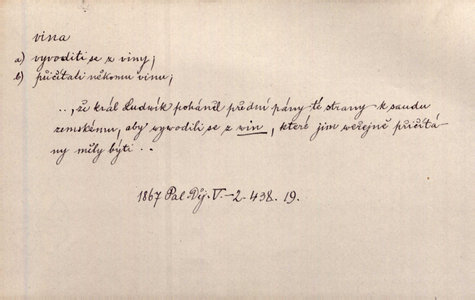 vina
a) vyvoditi se z viny;
b) přičítati někomu vinu;
.., že král Ludvík poháněl přední pány té strany k saudu
zemskému, aby vyvodili se z vin, které jim veřejně přičítá-
ny měly býti ..
1867 Pal. Děj. V.-2. 438. 19.